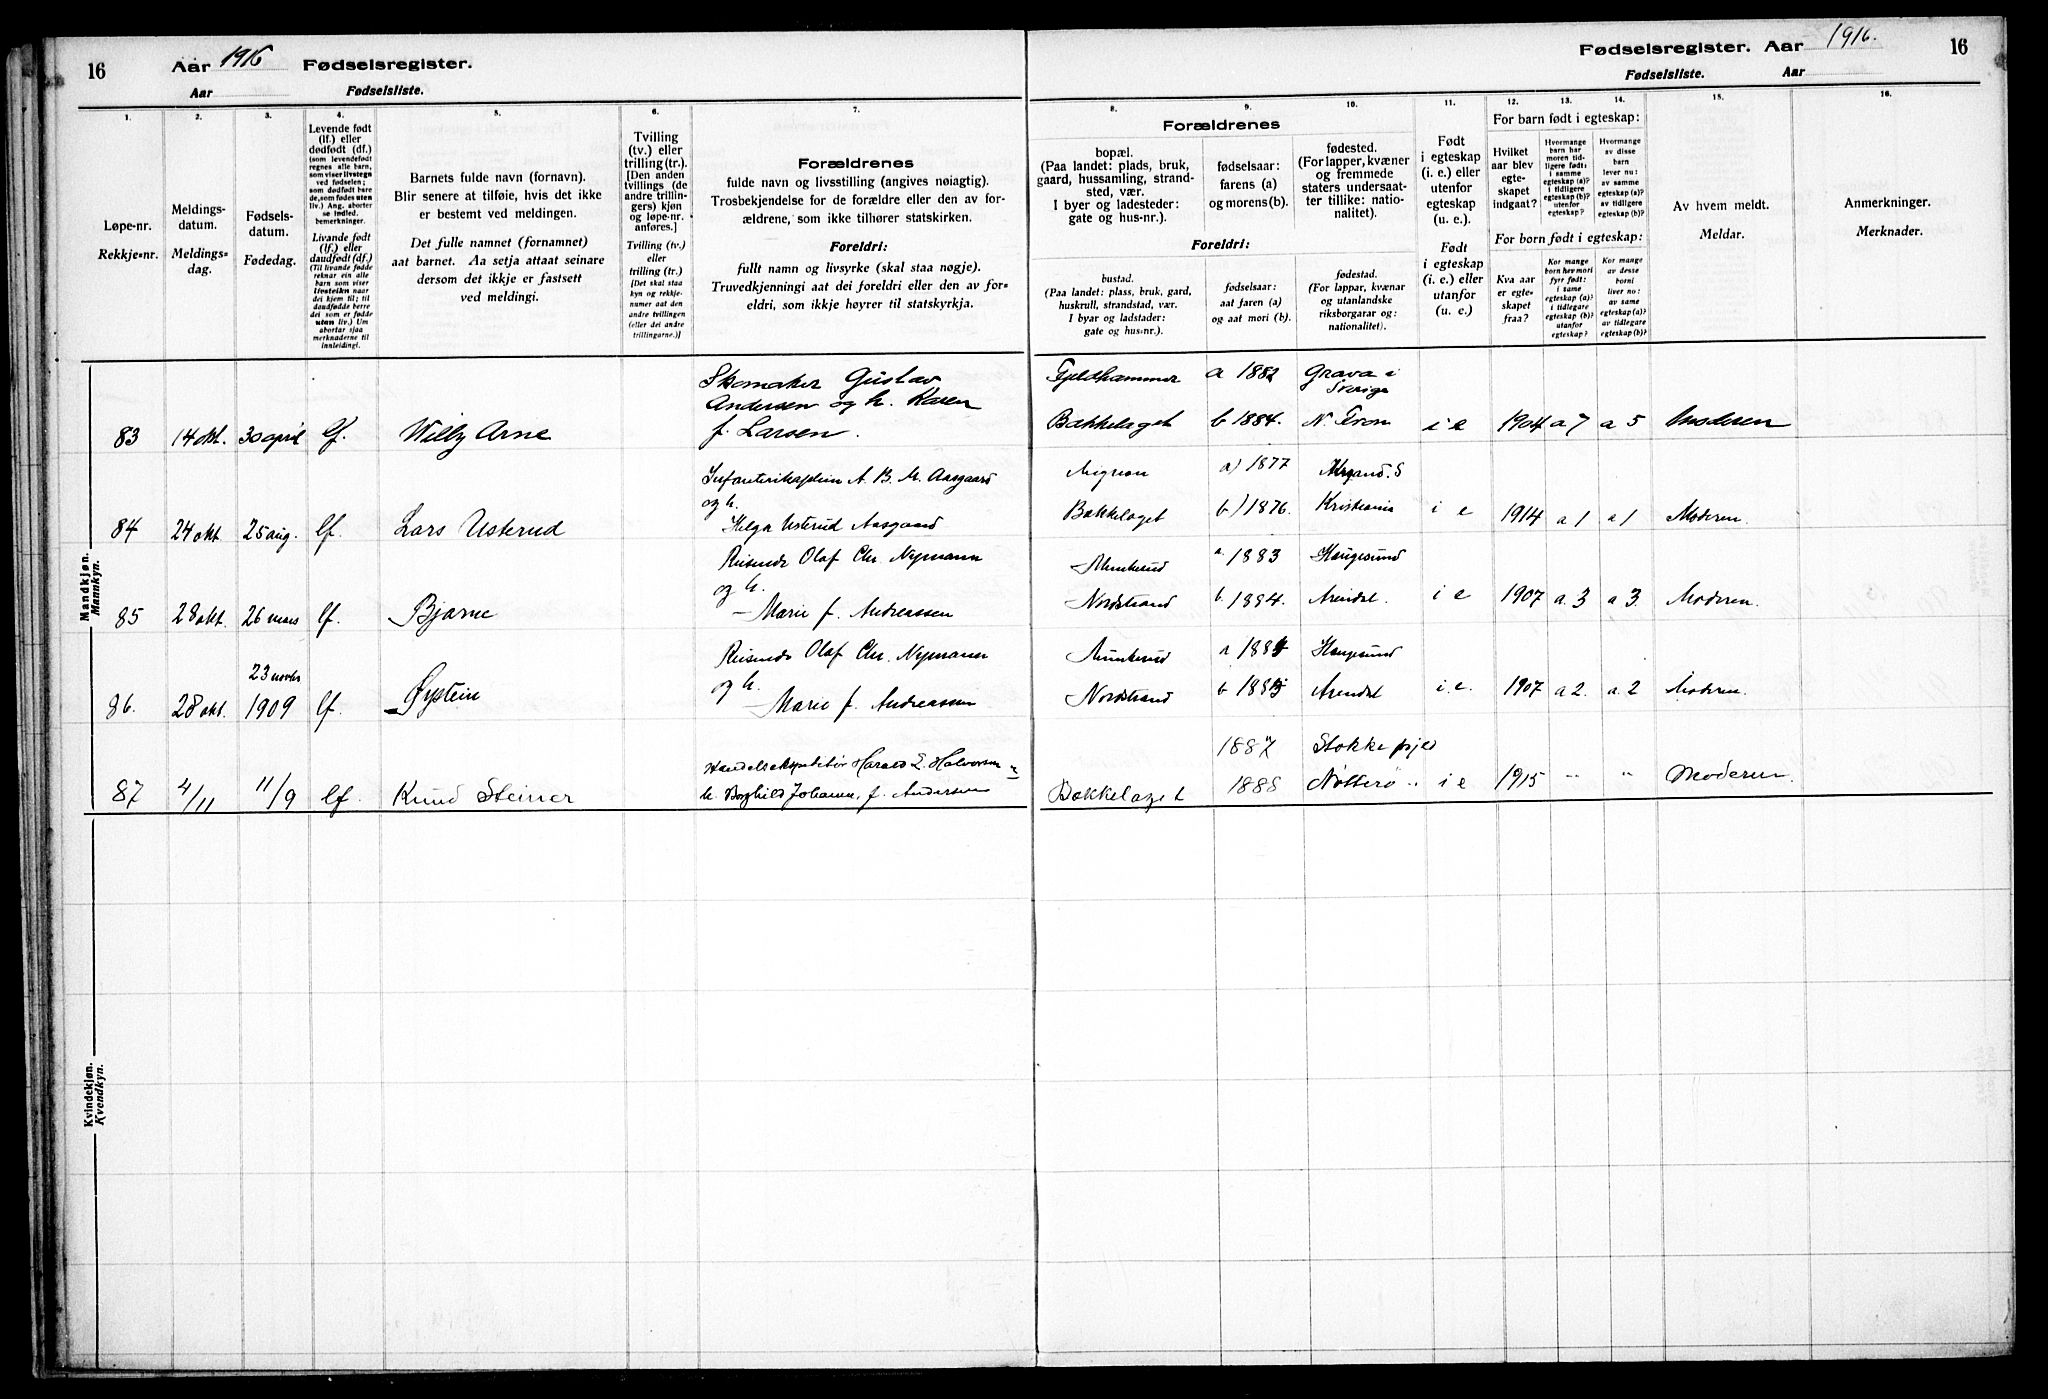 16 Aar 1916 Fødselsregister.
Aar Fødselsliste.
1. 2. 3. 4. 5. 6. 7.
Løpe-nr.
Rekkje-nr.
Meldings-
datum.
Meldings-
dag.
Fødsels-
datum.
Fødedag.
Levende født
(lf.) eller
dødfødt (df.)
(som levendefødt
regnes alle barn,
som viser livstegn
ved fødselen;
som dødfødt bare
de, som fødes uten
liv.) Ang. aborter
se indled.
bemerkninger.
Livande født
(lf.) eller
daudfødt (df.)
(Til livande fødde
reknar ein alle
barn som viser
livsteikn naar
dei kjem til; til
daudfødde berre
dei som er fødde
utan liv.) Um
abortar sjaa
merknaderne til
innleidingi.
Barnets fulde navn (fornavn).
Blir senere at tilføie, hvis det ikke
er bestemt ved meldingen.
Det fulle namnet (fornamnet)
aat barnet. Aa setja attaat seinare
dersom det ikkje er fastsett
ved meldingi.
Tvilling
(tv.) eller
trilling (tr.).
[Den anden
tvillings (de
andre trillin-
gers) kjøn
og løpe-nr.
anføres.]
Tvilling (tv.)
eller
trilling (tr.)
[Det skal staa
kyn og rekkje-
numer aat den
andre tvillingen
(eller dei andre
trillingarne.)]
Forældrenes
fulde navn og livsstilling (angives nøiagtig).
Trosbekjendelse for de forældre eller den av for-
ældrene, som ikke tilhører statskirken.
Foreldri:
fullt namn og livsyrke (skal staa nøgje).
Truvedkjenningi aat dei foreldri eller den av for-
eldri, som ikkje høyrer til statskyrkja.
Mandkjøn.
Mannkyn.
Skomaker Gustav
Andersen og h. Karen
83 14 okt. 30 april lf. Willy Arne f. Larsen.
A. B. M. Aasgaard
og h.
84 24 okt 25 aug. lf. Lars Usterud Helga Usterud Aasgaard
Reisende Olaf Chr. Nymann
og h.
85 28 okt. 26 mars lf. Bjarne Marie f. Andreassen
Reisende Olaf Chr. Nymann
23 novbr og h.
86. 28 okt. 1909 lf. Øystein Marie f. Andreassen
Harald E. Halvorsen
87 4/11 11/9 lf. Knud Steinar h. Borghild Johanne, f. Andersen
Kvindekjøn.
Kvendkyn.
Fødselsregister. Aar 1916. 16
Fødselsliste. Aar
8. 9. 10. 11. 12. 13. 14. 15. 16.
Forældrenes
bopæl.
(Paa landet: plads, bruk,
gaard, hussamling, strand-
sted, vær.
I byer og ladesteder:
gate og hus-nr.).
fødselsaar:
farens (a)
og morens (b).
fødested.
(For lapper, kvæner
og fremmede
staters undersaat-
ter tillike: natio-
nalitet).
Foreldri:
bustad.
(Paa landet: plass, bruk, gard,
huskrull, strandstad, vær.
I byar og ladstader:
gate og hus-nr.).
fødselsaar:
aat faren (a)
og aat mori (b).
fødestad.
(For lappar, kvænar
og utanlandske
riksborgarar og:
nationalitet).
Født
i egteskap
(i. e.) eller
utenfor
egteskap
(u. e.).
Født
i egteskap
(i. e.) eller
utanfor
egteskap
(u. e.).
For barn født i egteskap:
Hvilket
aar blev
egte-
skapet
indgaat?
Hvormange
barn har
moren tid-
ligere født:
i samme
egteskap (a)?
i tidligere
egteskap (b)?
utenfor
egteskap?
Hvormange
av disse
barn
lever nu:
av samme
egteskap (a)?
av tidligere
egteskap (b)?
For born født i egteskap:
Kva aar
er egte-
skapet
fraa?
Kor mange
born hev mori
fyrr født:
i same
egteskap (a)?
i tidlegare
egteskap (b)?
utanfor
egteskap?
Kor mange
av desse
borni
liver no:
av same
egteskap (a)?
av tidlegare
egteskap (b)?
Av hvem meldt.
Meldar.
Anmerkninger.
Merknader.
Fjeldhammer a 1882 Grava i
Sverige
Bækkelaget b 1884. N. Fron i e 1904 a 7 a 5 Moderen
a) 1877
Bækkelaget b) 1876. Kristiania i e 1914 a 1 a 1 Moderen.
Munkerud a 1883 Haugesund
Nordstrand b. 1884. Arendal. i e 1907 a. 3 a 3. Moderen.
Munkerud a Haugesund
Nordstrand b Arendal i. e. 1907 a 2. a. 2 Moderen.
1887 Stokke
Bækkelaget 1888 Nøtterø i e 1915 " " Moderen.